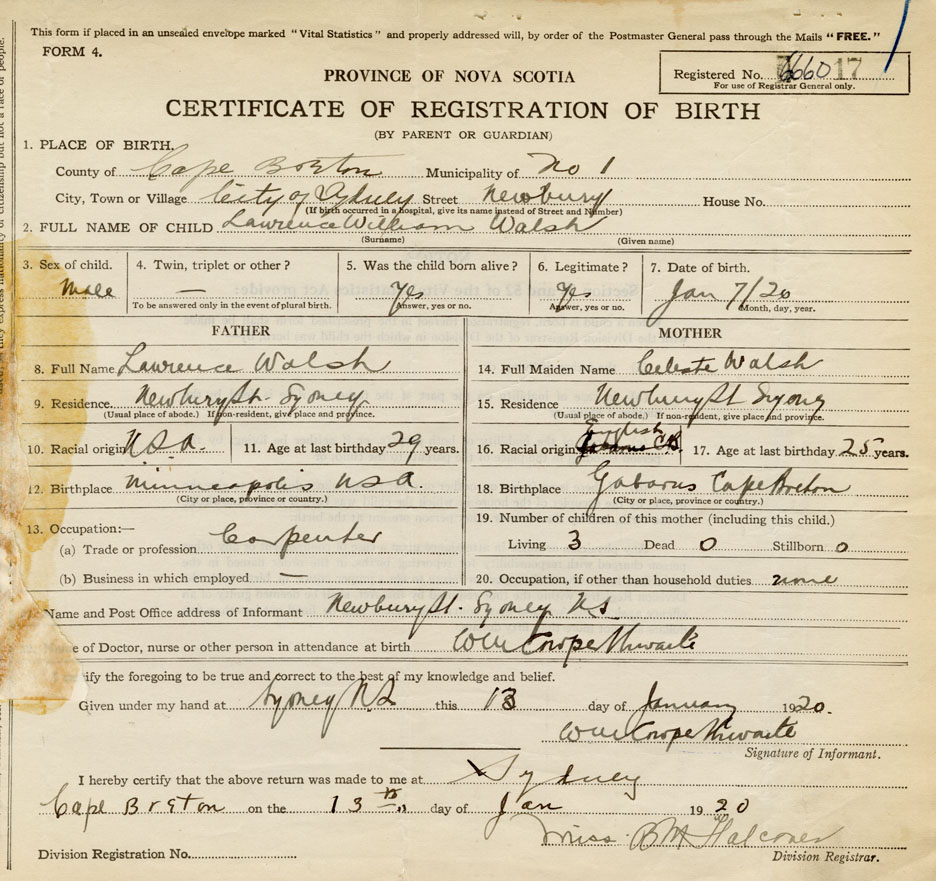 This form if placed in an unsealed envelope marked "Vital Statistics" and properly addressed will, by order of the Postmaster General pass through the Mails "FREE."
FORM 4.
PROVINCE OF NOVA SCOTIA
Registered No. 6660 17
For use of Registrar General only.
CERTIFICATE OF REGISTRATION OF BIRTH
(BY PARENT OR GUARDIAN)
1. PLACE OF BIRTH.
County of Cape Breton Municipality of No 1
City, Town or Village City of Sydney Street Newbury House No.
(If birth occurred in a hospital, give its name instead of Street and Number)
2. FULL NAME OF CHILD Lawrence William Walsh
(Surname) (Given name)
3. Sex of child. 4. Twin, triplet or other? 5. Was the child born alive? 6. Legitimate? 7. Date of birth.
Male — Yes Yes Jan 7/20
To be answered only in the event of plural birth. Answer, yes or no. Answer, yes or no. Month, day, year.
FATHER MOTHER
8. Full Name Lawrence Walsh 14. Full Maiden Name Celeste Walsh
9. Residence Newbury St. Sydney 15. Residence Newbury St Sydney
(Usual place of abode.) If non-resident, give place and province. (Usual place of abode.) If non-resident, give place and province.
10. Racial origin U.S.A. 11. Age at last birthday 29 years. 16. Racial origin English 17. Age at last birthday 25 years.
12. Birthplace Minneapolis USA. 18. Birthplace Gabarus Cape Breton
(City or place, province or country.) (City or place, province or country.)
13. Occupation:— 19. Number of children of this mother (including this child.)
(a) Trade or profession Carpenter Living 3 Dead 0 Stillborn 0
(b) Business in which employed — 20. Occupation, if other than household duties none
Name and Post Office address of Informant Newbury St. Sydney N.S
of Doctor, nurse or other person in attendance at birth WM Cowperthwaite
the foregoing to be true and correct to the best of my knowledge and belief.
Given under my hand at Sydney N.S this 13 day of January 1920.
WM Cowperthwaite
Signature of Informant.
I hereby certify that the above return was made to me at Sydney
Cape Breton on the 13th day of Jan 1920
Miss B M Falconer
Division Registration No. Division Registrar.